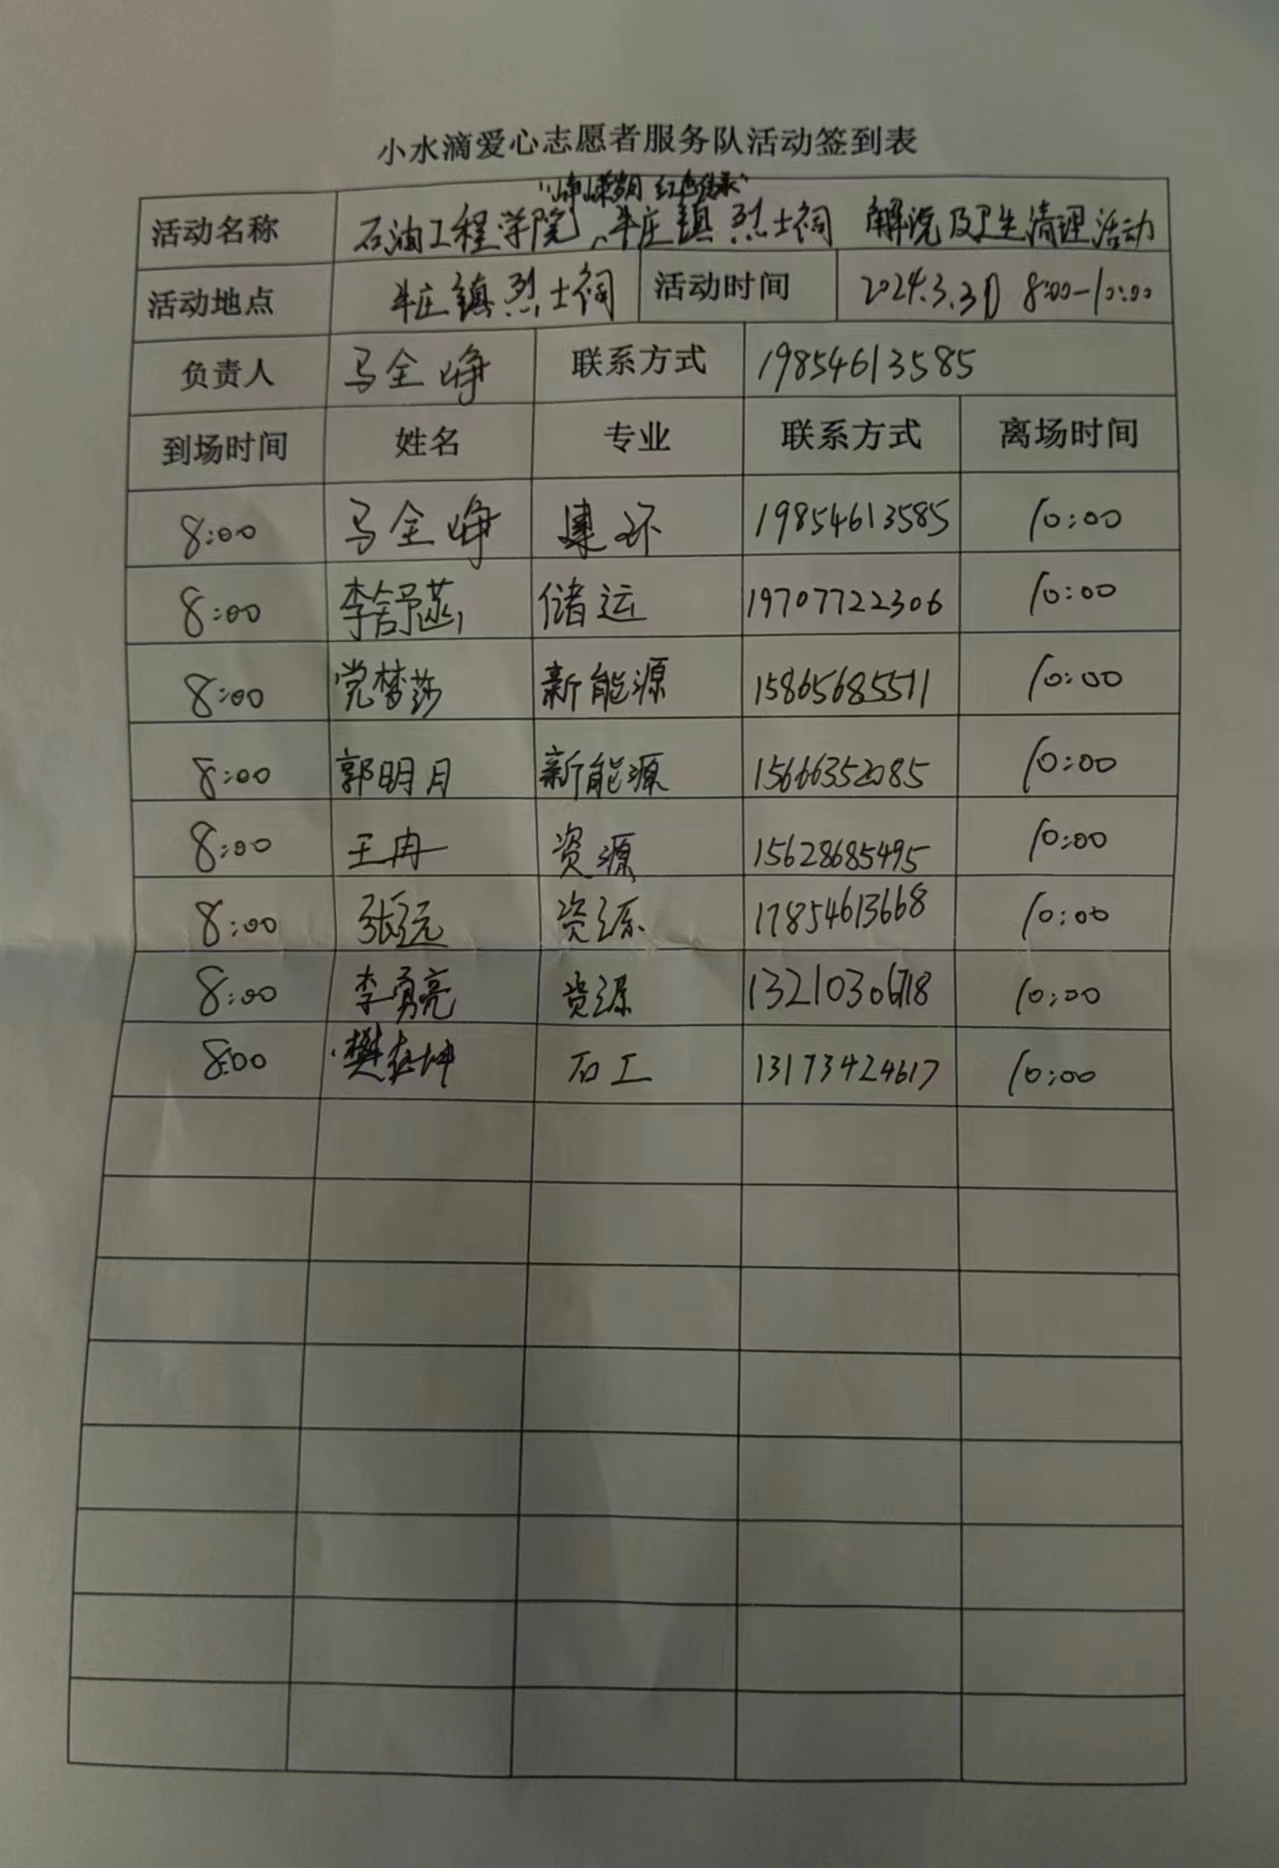 小水滴爱心志愿者服务队活动签到表
"峥嵘岁月 红色传承"
活动名称 石油工程学院 牛庄镇烈士祠 解说及卫生清理活动
活动地点 牛庄镇烈士祠 活动时间 2024.3.31 8:00-10:00
负责人 马全峥 联系方式 19854613585
到场时间 姓名 专业 联系方式 离场时间
8:00 马全峥 建环 19854613585 10:00
8:00 李舒燕 储运 19707722306 10:00
8:00 党梦莎 新能源 15865685511 10:00
8:00 郭明月 新能源 15666352085 10:00
8:00 王冉 资源 15628685495 10:00
8:00 张远 资源 17854613668 10:00
8:00 李勇亮 资源 13210306718 10:00
8:00 樊 坤 石工 13173424617 10:00